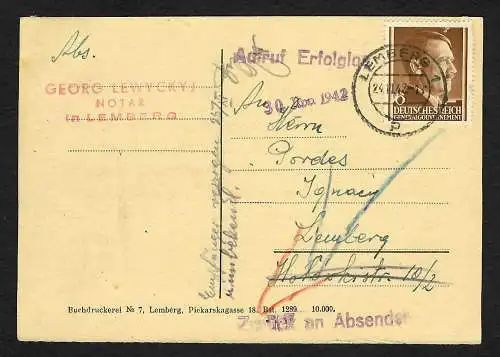 Abs.
GEORG LEWYCKYJ
NOTAR
in LEMBERG
Aufruf Erfolglos
30. 1942
LEMBERG 1
DEUTSCHES REICH
GENERALGOUVERNEMENT
An
Herrn
Pordes
Ignacy
Lemberg
10/2
Empfänger
unbekannt
Buchdruckerei № 7, Lemberg, Piekarskagasse 18. Bst. 1289 10.000.
Zurück an Absender